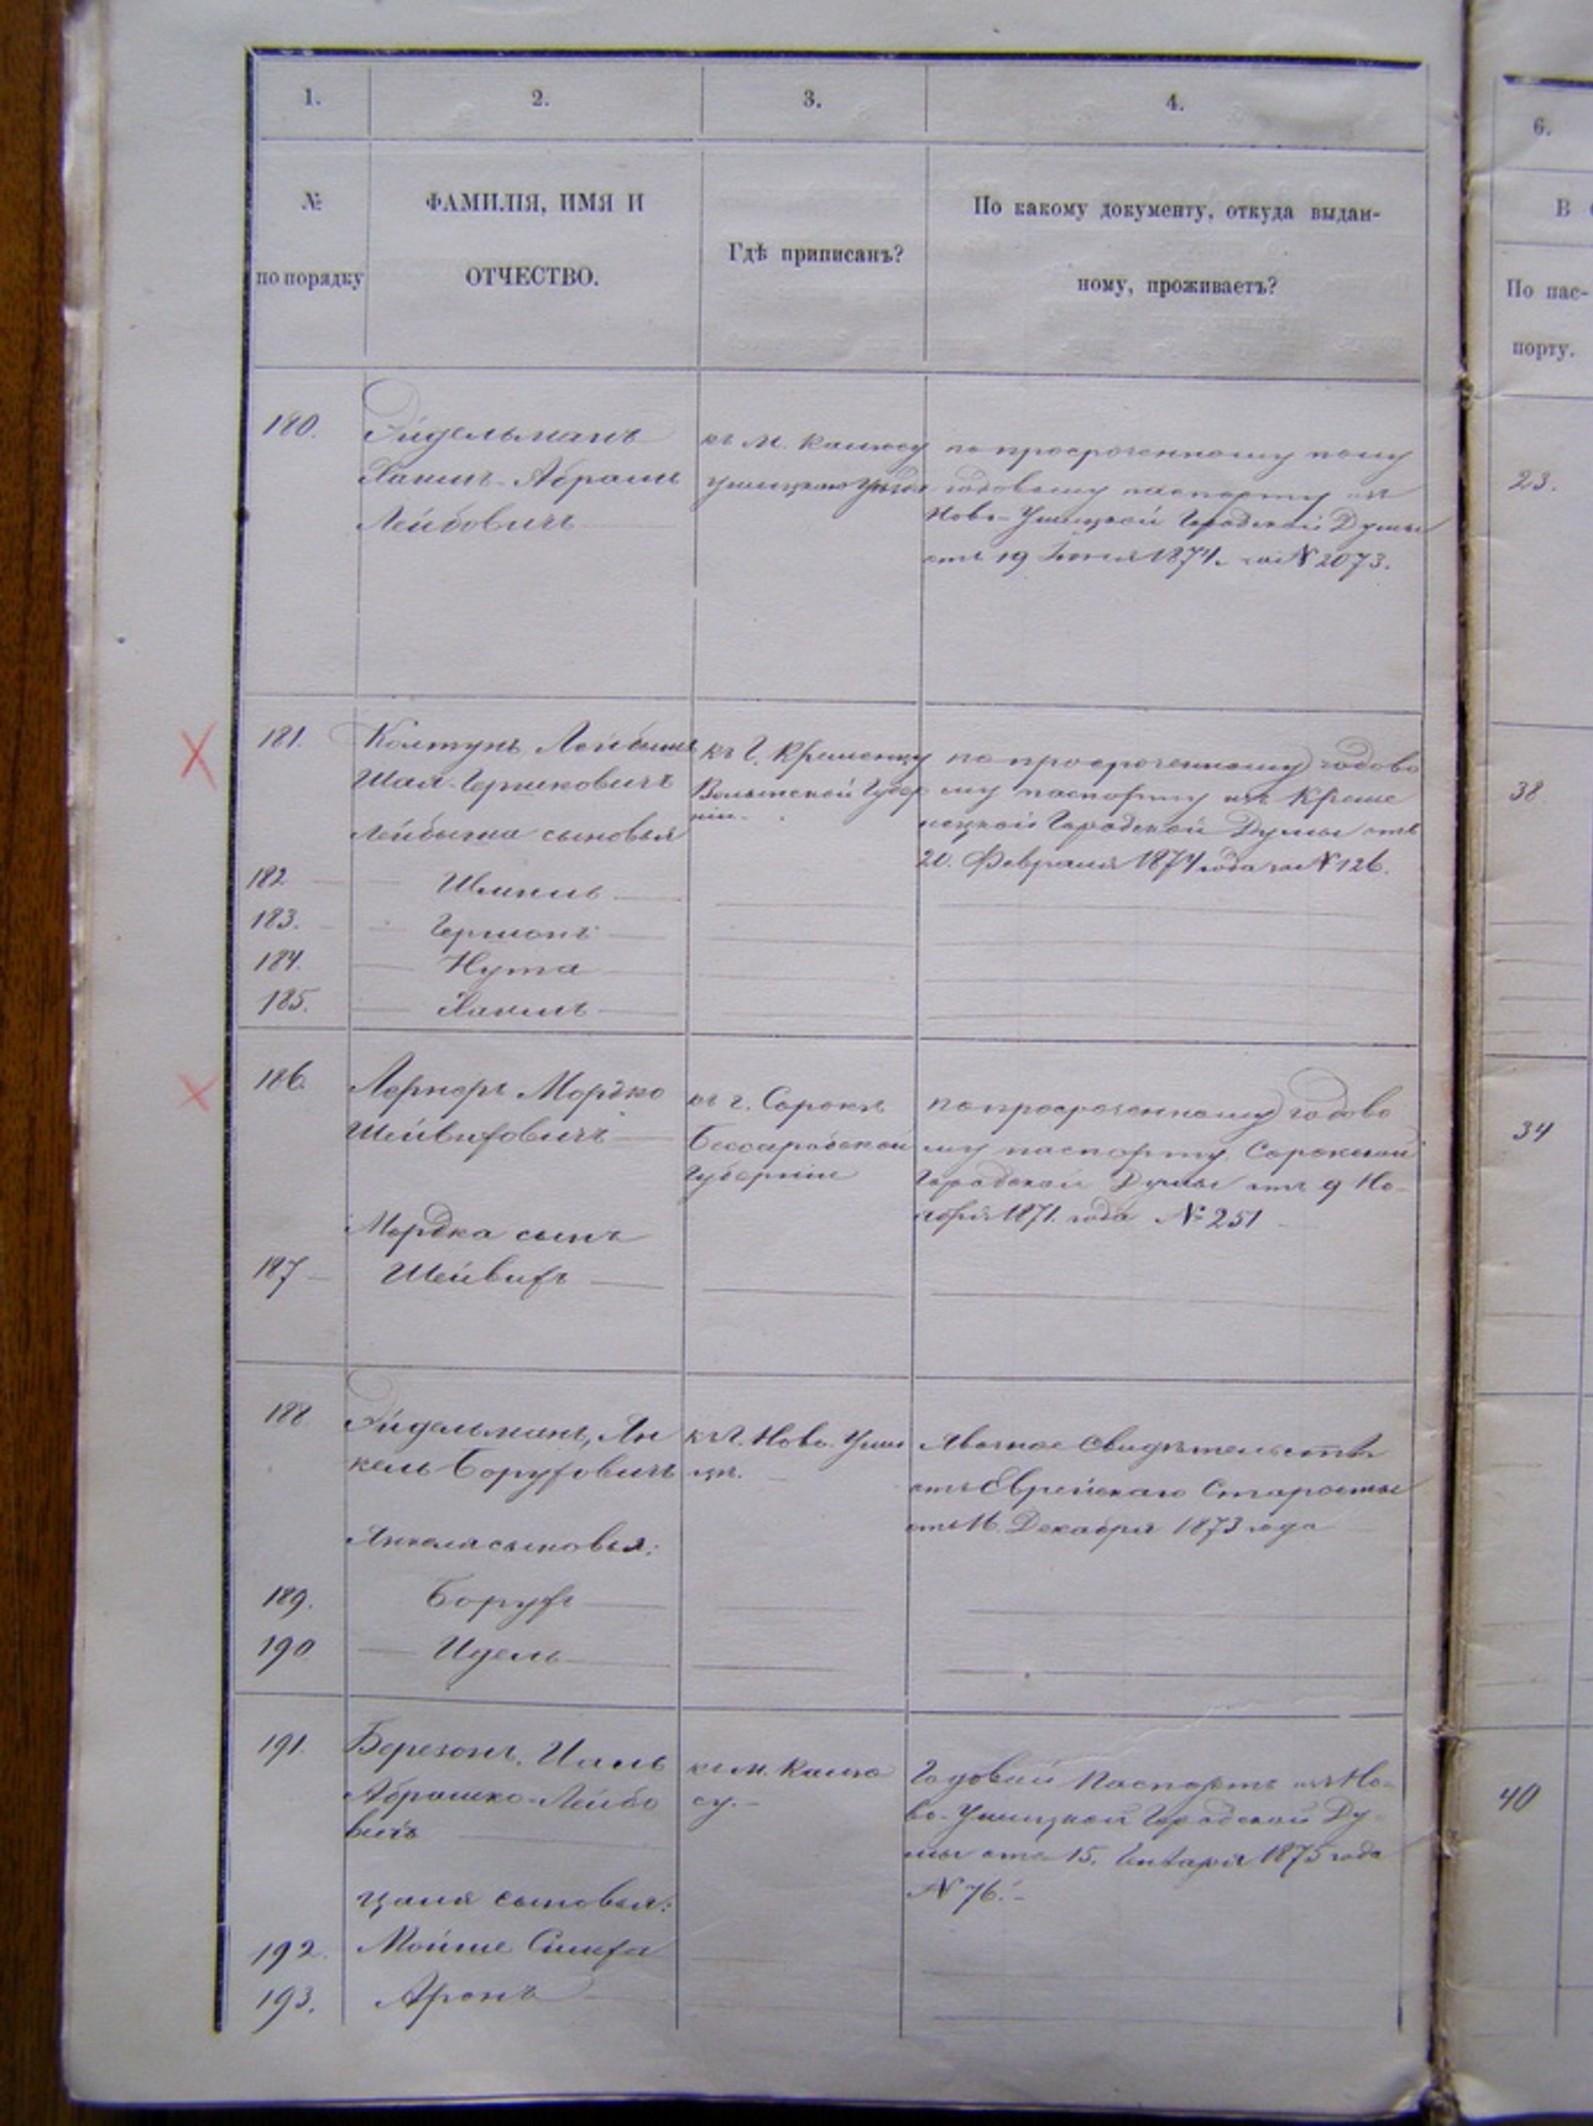 1.
2.
3.
4.
№
по порядку
ФАМИЛІЯ, ИМЯ И
ОТЧЕСТВО.
Гдѣ приписанъ?
По какому документу, откуда выдан-
ному, проживаетъ?
180.
Эйдельманъ
Хаимъ-Абрамъ
Лейбовичъ
къ м. Калюсу
Ушицкаго Уѣзда
по просроченному полу
годовому паспорту изъ
Ново-Ушицкой Городской Думы
отъ 19 Іюня 1874. за № 2073.
181.
Колтунъ Лейбышъ
Шая-Гершковичъ
Лейбыша сыновья
къ Г. Кременцу
Волынской Губер
ніи.
по просроченному годово
му паспорту изъ Креме
нецкой Городской Думы отъ
20. Февраля 1874 года за № 126.
182
Шмиль
183.
184.
Нута
185.
Хаимъ
186.
Лернеръ Мордко
Шейвиховичъ
къ г. Сороки
Бессарабской
Губерніи
по просроченному годово
му паспорту, Сорокской
Городской Думы отъ 9 Но-
ября 1871. года № 251
Мордка сынъ
187
Шейвихъ
188
Эйдельманъ, Ян
кель Борухович
къ Г. Ново-Уши
цѣ.
Явочное Свидѣтельство
отъ Еврейскаго Старосты
отъ 16. Декабря 1873 года
Янкеля сыновья:
189.
Борухъ
190
Идель
191.
Березонъ, Цаль
Абрашко-Лейбо
вичъ
къ м. Калю
су.
Годовый Паспортъ изъ Но-
во-Ушицкой Городской Ду-
мы отъ 15. Января 1875 года
№ 76.
Цаля сыновья:
192.
Мойше Симха
193.
Аронъ
6.
В
По пас-
порту.
23.
38
34
40